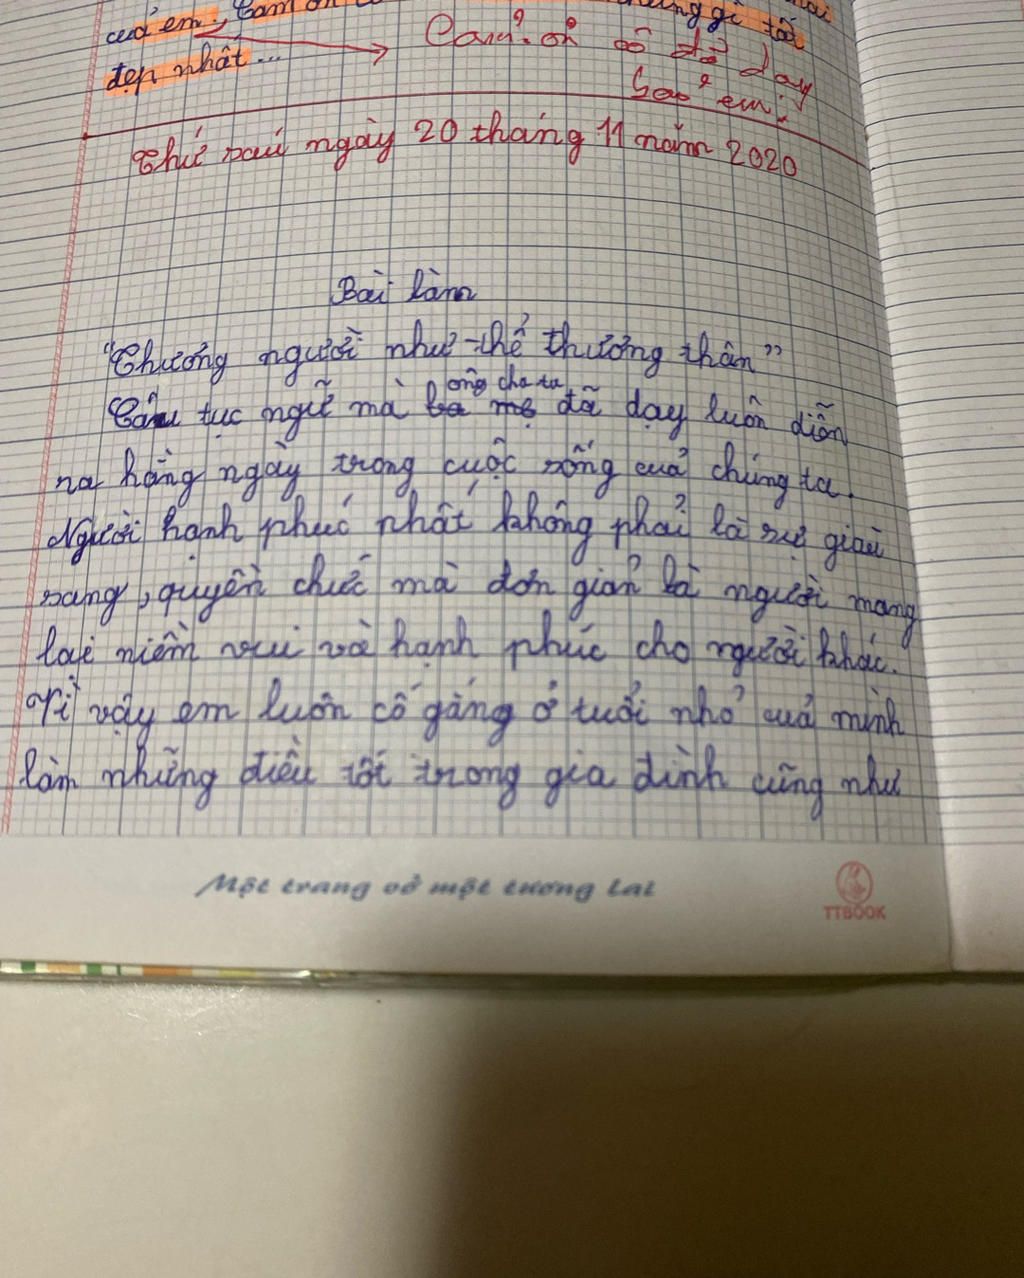 những gì tốt
của em, Cảm ơn
đẹp nhất...
Cảm ơn cô đã dạy
bảo em!
Thứ sáu ngày 20 tháng 11 năm 2020
Bài làm
"Thương người như thể thương thân"
ông cha ta
Câu tục ngữ mà ba mẹ đã dạy luôn diễn
ra hằng ngày trong cuộc sống của chúng ta.
Người hạnh phúc nhất không phải là sự giàu
sang, quyền chức mà đơn giản là người mang
lại niềm vui và hạnh phúc cho người khác.
Vì vậy em luôn cố gắng ở tuổi nhỏ của mình
làm những điều tốt trong gia đình cũng như
Một trang vở một tương lai
TTBOOK